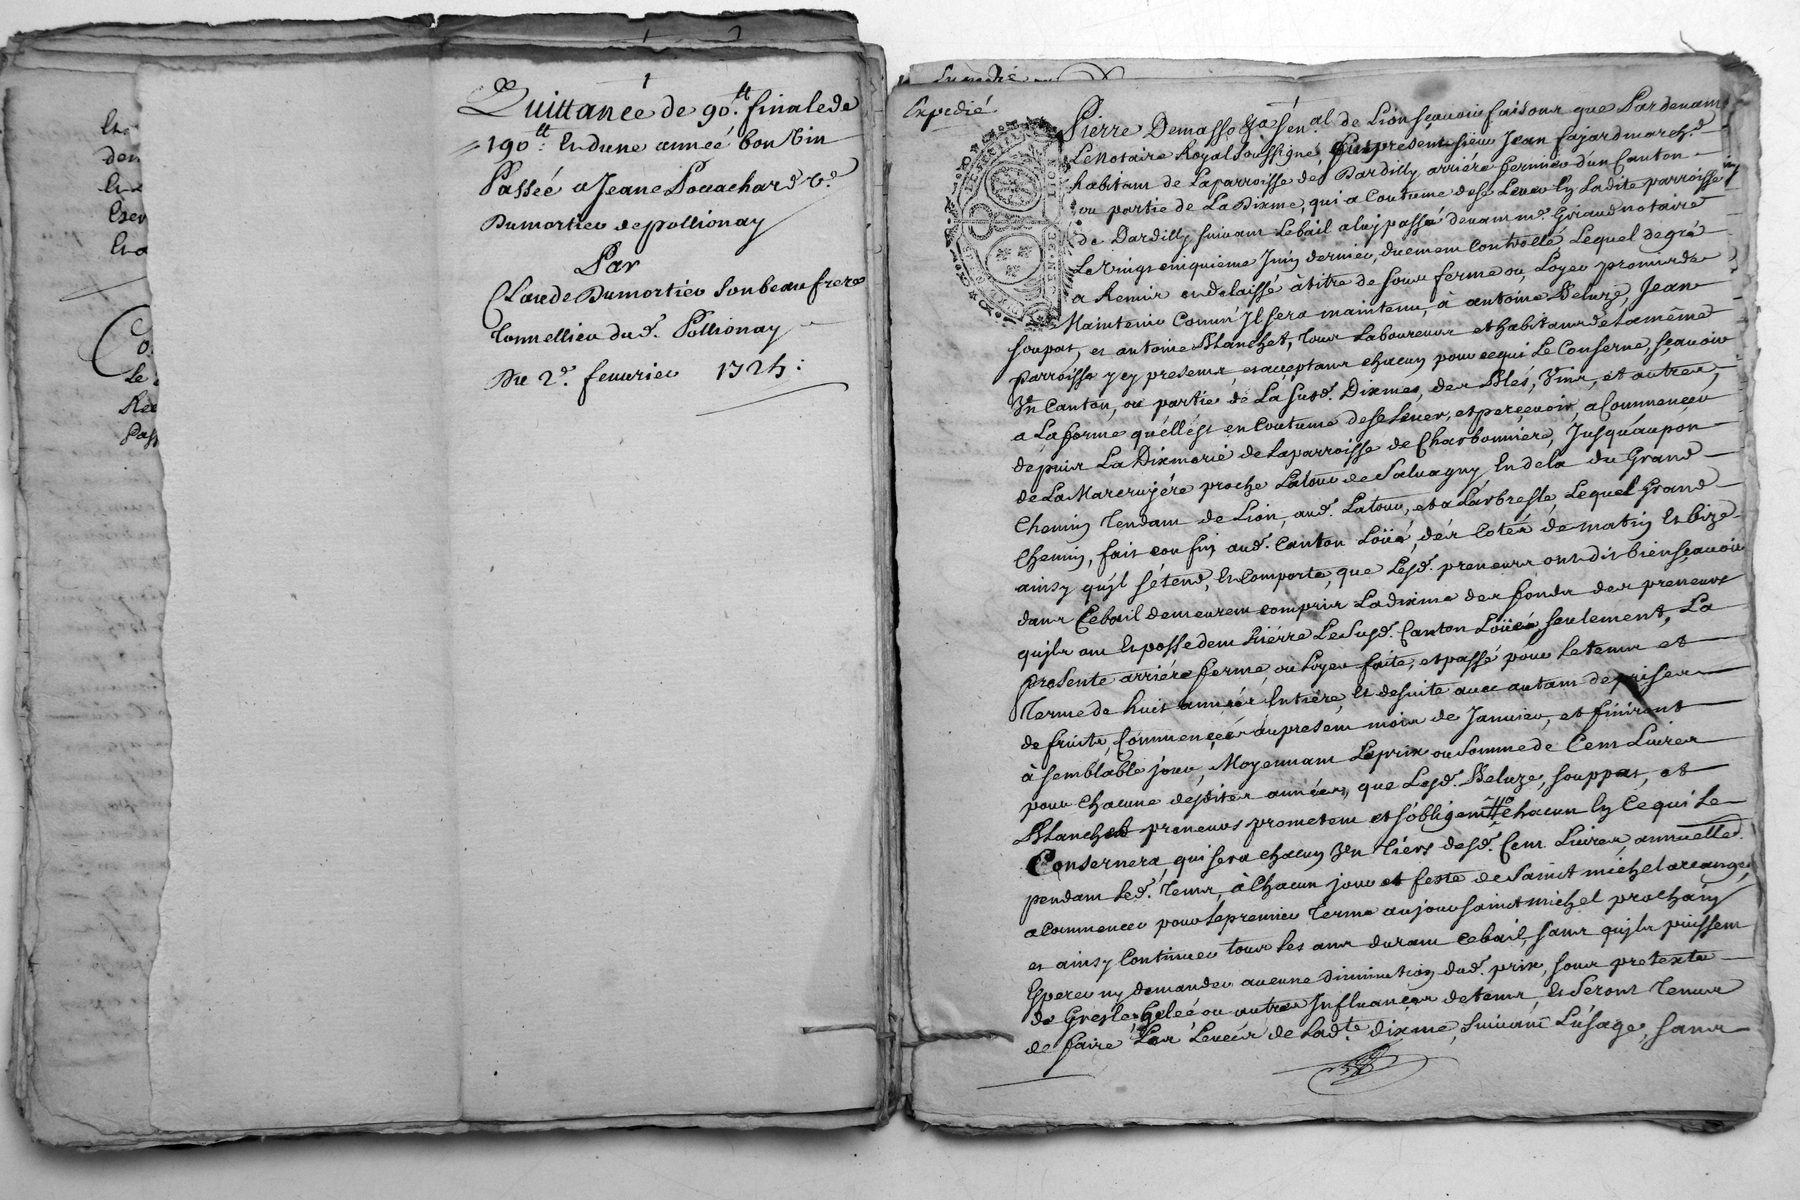 Quittancé de 90.tt finale de
190.tt En d'une année bon vin
Passée a Jeane Pouachard ve.
Dumortier de pollionay
Par
Claude Dumortier son beau frere
Tonnellier dud. Pollionay
Du 2e. feuurier 1724:
Expedié
Pierre Demasso sen.al de Lion sçauoir faisons que Par deuant
Le Notaire Royal soussigné, fut present sieur Jean fajard march.d
habitant de La parroisse de Dardilly arriére fermier d'un Canton
ou partie de La Dixme, qui a Coutume de se Leuer En La dite parroisse
de Dardilly suiuant Le bail a luy passé deuant me. Giraud notaire
Le vingt cinquieme Juin dernier, duement Controllé, Lequel de gré
a Remis en delaissé à titre de sous ferme ou Loyer promis de
Maintenir Comm' Il sera maintenu, à antoine Beluze, Jean
soupat, et antoine Blanchet, Tous Laboureurs et habitans de La même
Parroisse y cy presents, et acceptans chacun pour ce qui Le Conserne, sçauoir
Vn Canton, ou partie de La susd. Dixmes, des Blés, Vins, et autres,
a La forme qu'elle est en Coutume de se Leuer, et perceuoir, a Commencer
depuis La Dixmerie de La parroisse de Charbonniere, Jusqu'au pon
de La Marcruyére proche La tour de Saluagny En dela du Grand
Chemin Tendant de Lion, aud. La tour, et a L'arbresle, Lequel Grand
Chemin, fait confin aud. Canton Loüé, des Cotés de matin Et bize
ainsy qu'jl s'étend, Et Comporte, que Lesd. preneurs ont dit bien sçauoir
dans Ce bail demeurent compris La dixme des fonds des preneurs
qu'jls ont Et possedent Riérre Le susd. Canton Loüéé seulement, La
presente arriére ferme, ou Loyer faite, et passé pour Le tems et
Terme de huit années Entiére, Et de suite auec autant de prises
de fruits, Commencées au present mois de Januier, et finiront
à semblable jour, Moyennant Le prix ou somme de Cent Liures
pour Chacune desdites années, que Lesd. Beluze, souppat, et
Blanchet preneurs prometent et s'obligent chacun En Ce qui Le
Consernera, qui sera chacun Vn Tiers desd. Cent Liures, annuelle
pendant Led. Tems, à Chacun jour et feste de Saint michel arcange,
a Commencer pour Le premier Terme au jour saint michel prochain
et ainsy Continuer tous les ans durant Ce bail, sans qu'jls puissent
Esperer ny demander aucune diminution dud. prix, sous pretexte
de Gresle, Gelée ou autres Influances de tems, Et seront Tenus
de faire Les Leuées de Lad.te dixme, suiuant L'usage, sans